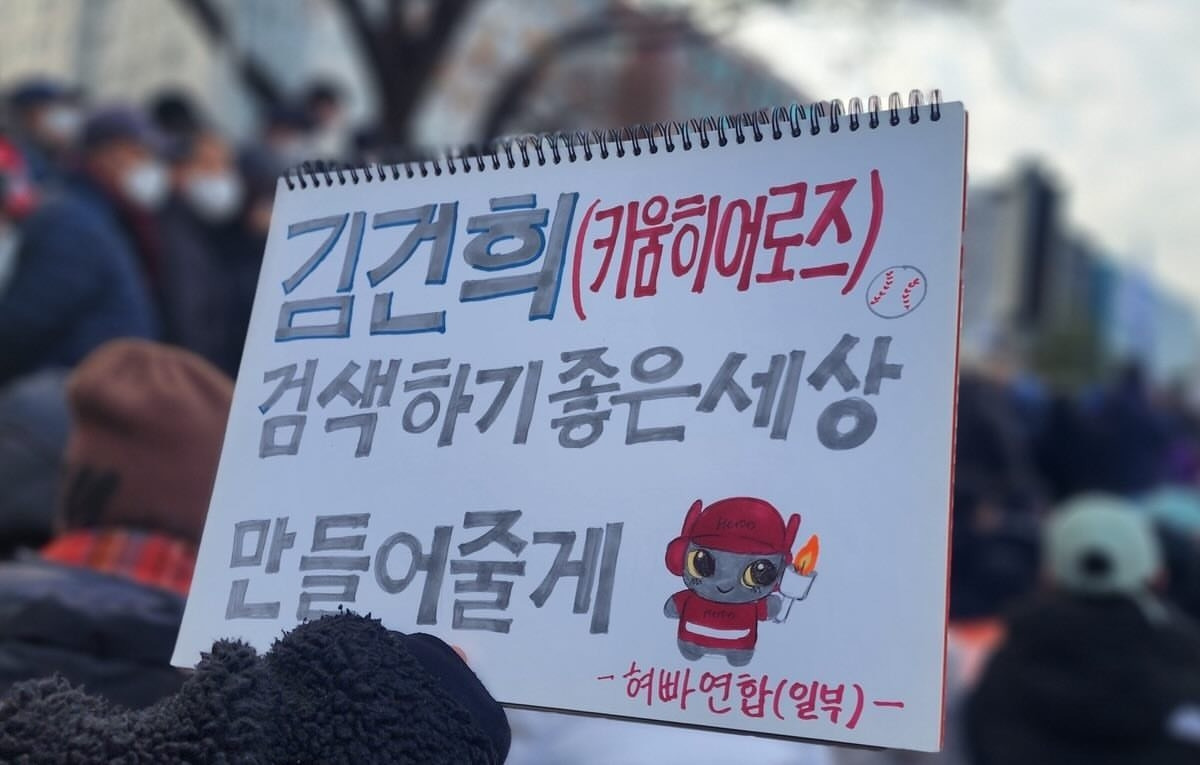 김건희(키움히어로즈)
검색하기좋은세상
만들어줄게
Heroes
Heroes
-혀빠연합(일부)-